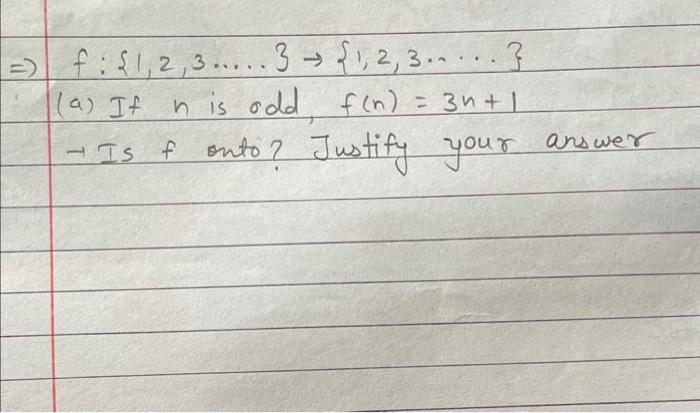 ⇒ f : {1, 2, 3.....} → {1, 2, 3.....}
(a) If n is odd, f(n) = 3n + 1
→ Is f onto? Justify your answer